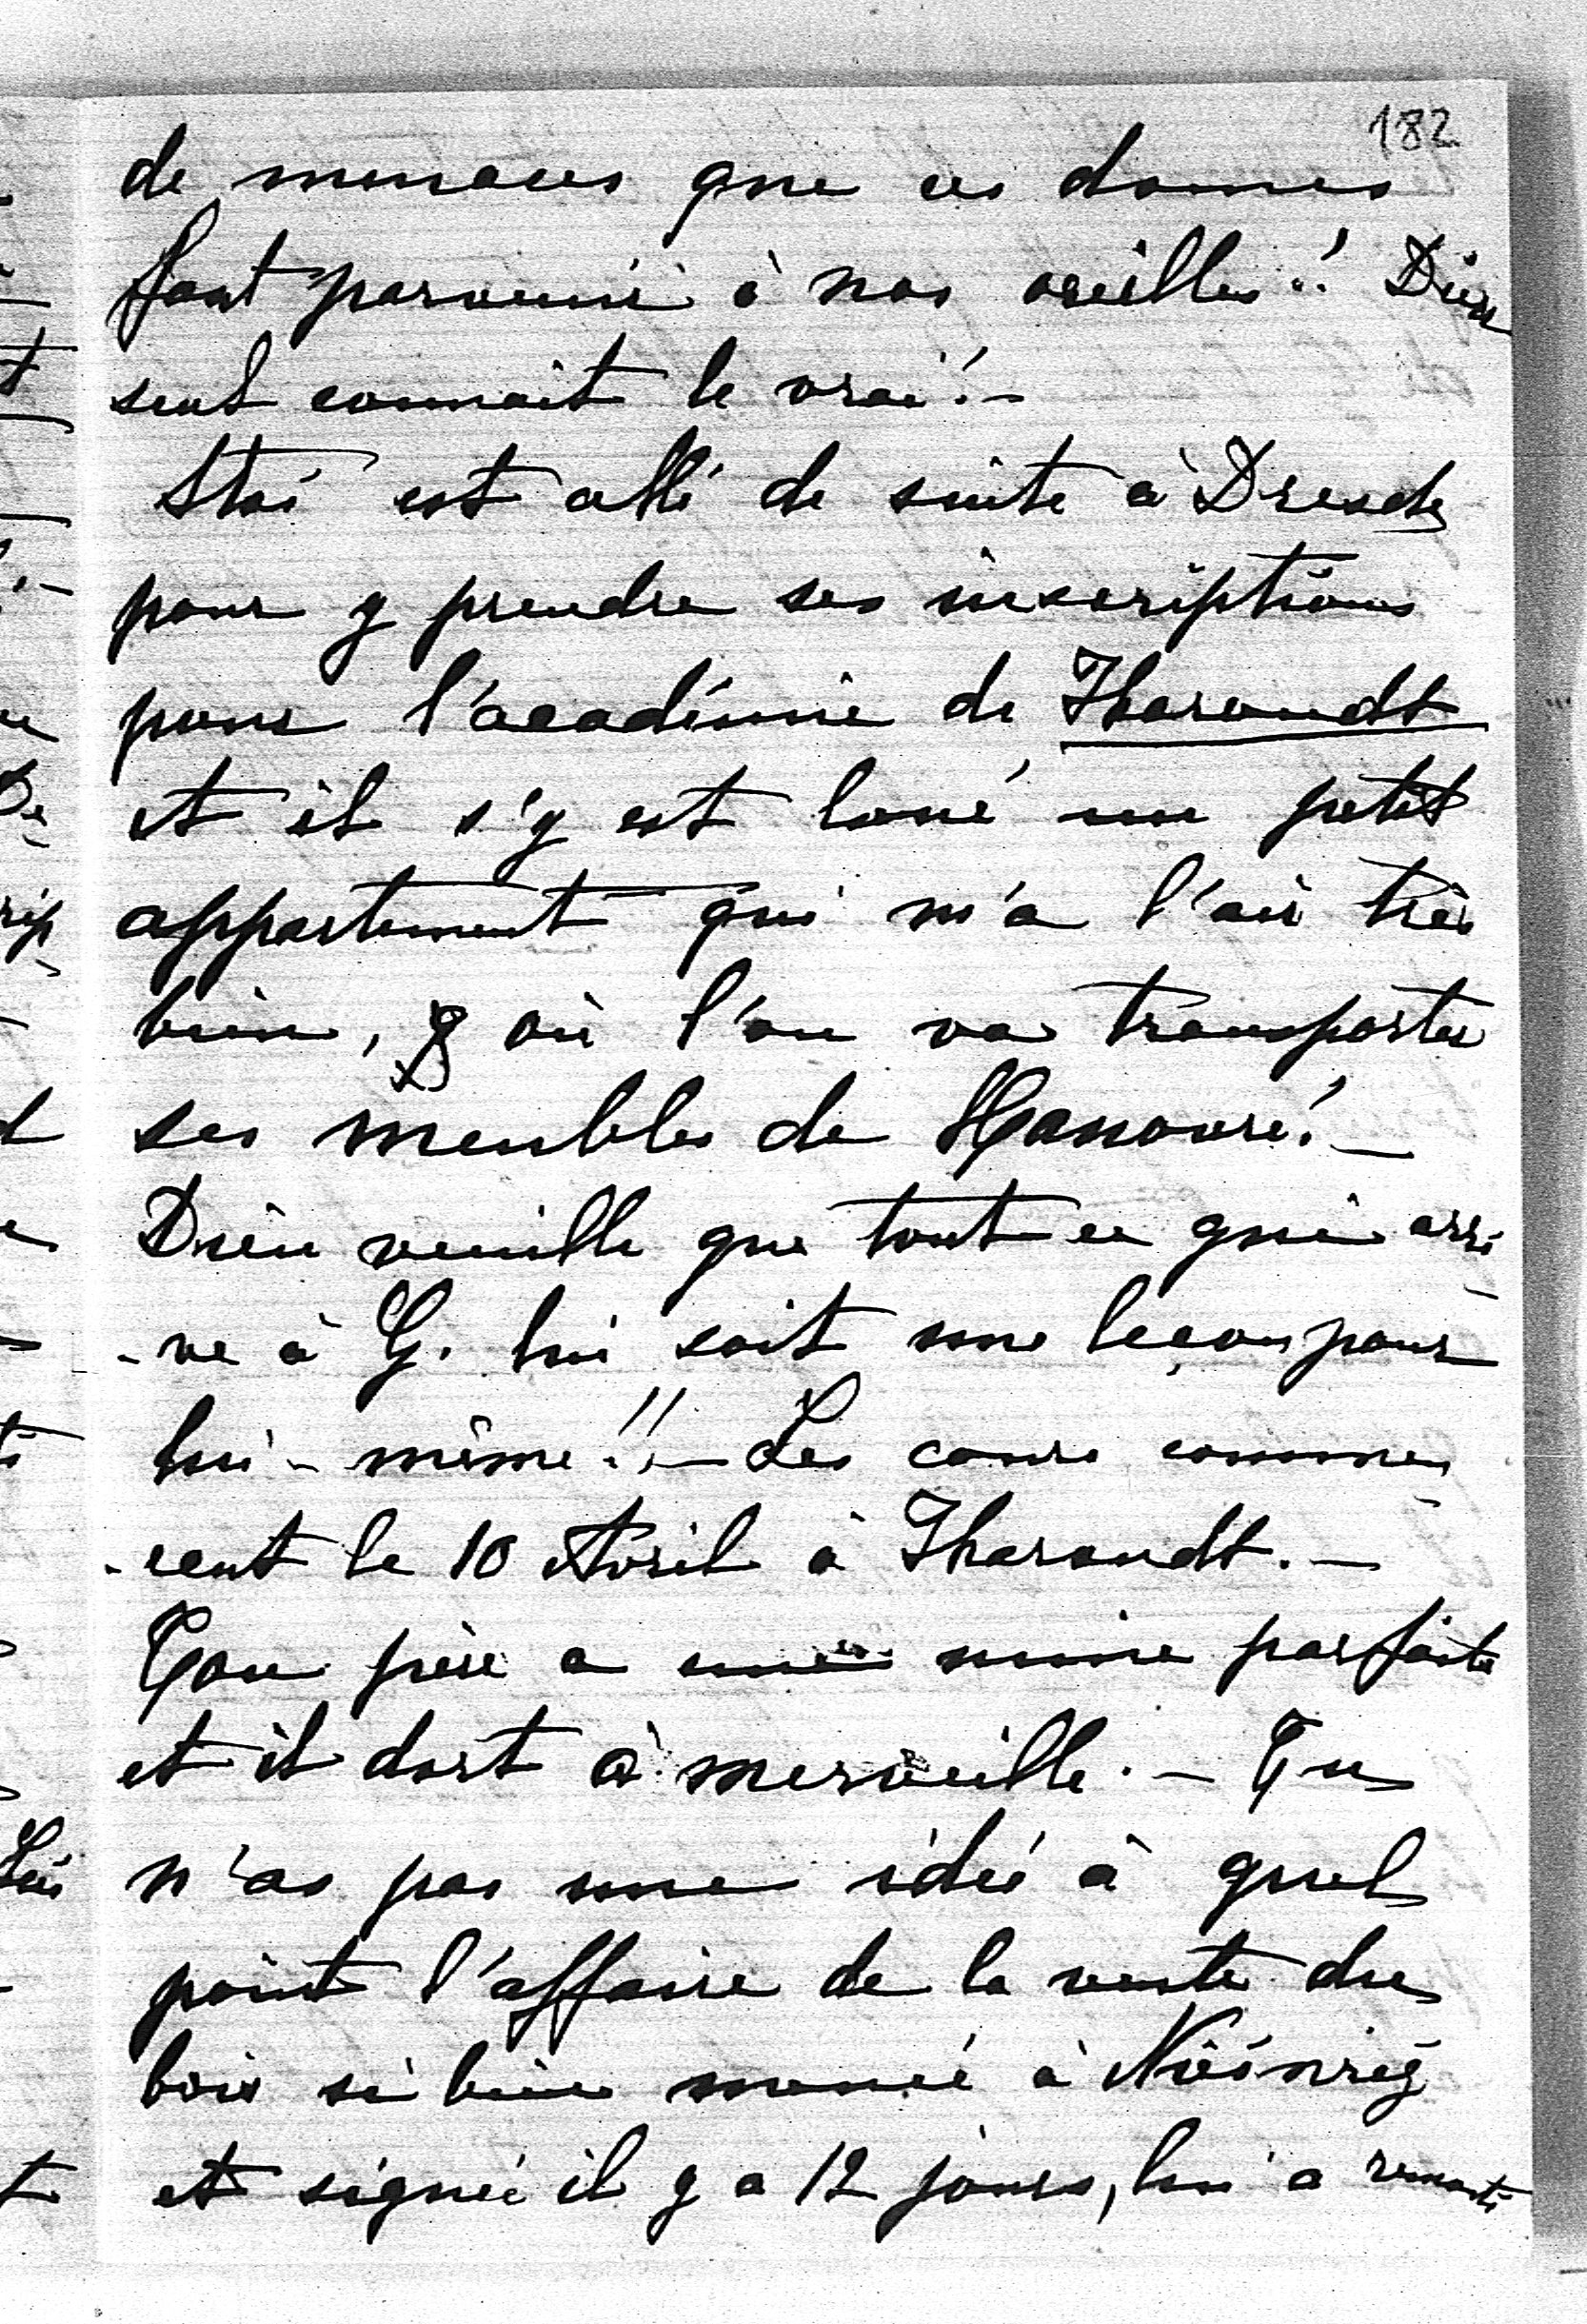 182
de menaces que ces dames
font parvenir à nos oreilles!! Dieu
seul connait le vrai!–
est allé de suite à Dresde
pour y prendre ses inscriptions
pour l'académie de Tharandt
et il s'y est loué un petit
appartement qui m'a l'air très
bien, & où l'on va transporter
ses meubles de Hanovre!–
Dieu veuille que tout ce qui arri-
-ve à G. lui soit une leçon pour
lui-même!!– Les cours commen-
-cent le 10 Avril à Tharandt.–
Ton père a une mine parfaite
et il dort à merveille.– Tu
n'as pas une idée à quel
point l'affaire de la vente du
bois si bien menée à
et signée il y a 12 jours, lui a remonté